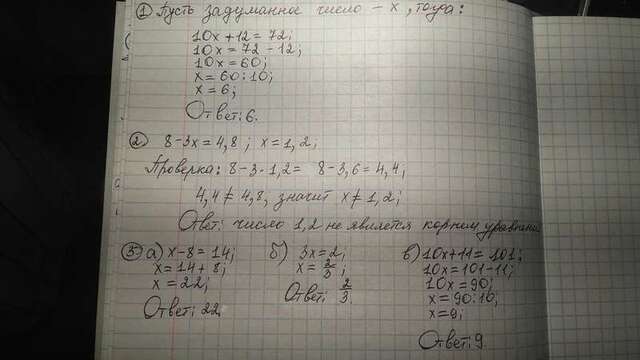 ① Пусть задуманное число – x, тогда:
10x+12=72;
10x=72-12;
10x=60;
x=60:10;
x=6;
Ответ: 6.
② 8-3x=4,8; x=1,2;
Проверка: 8-3·1,2= 8-3,6=4,4;
4,4≠4,8, значит x≠1,2;
Ответ: число 1,2 не является корнем уравнения
③ а) x-8=14;
x=14+8;
x=22;
Ответ: 22.
б) 3x=2;
x=2/3;
Ответ: 2/3.
в) 10x+11=101;
10x=101-11;
10x=90;
x=90:10;
x=9;
Ответ: 9.